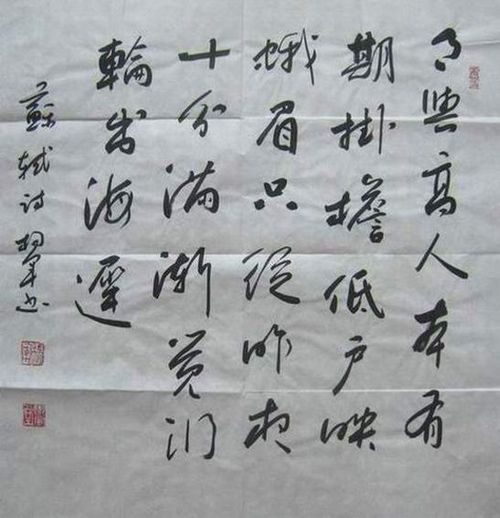 月與高人本有
期掛檐低户映
蛾眉只從昨夜
十分滿漸覺冰
輪出海遲
蘇軾詩